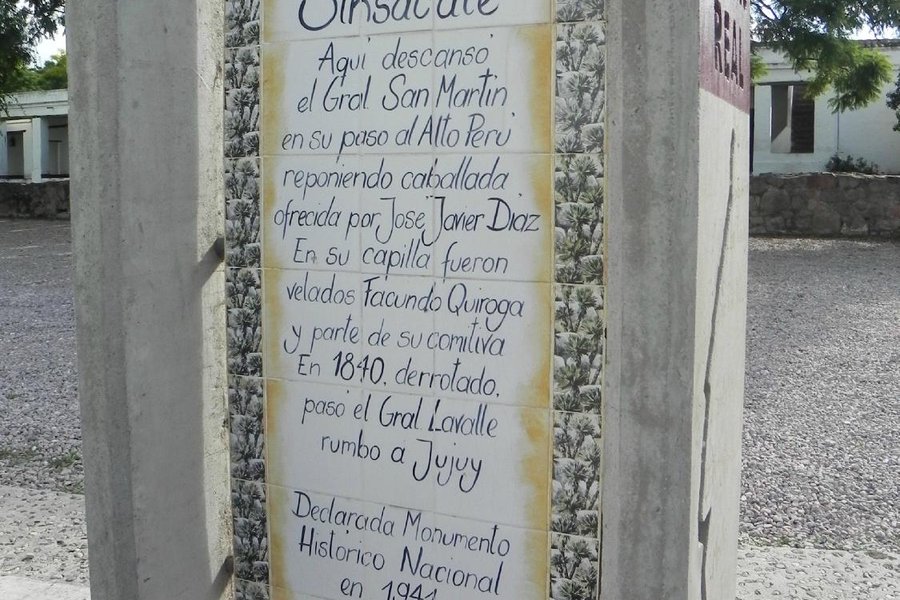 Sinsacate
Aqui descansó
el Gral. San Martin
en su paso al Alto Perú
reponiendo caballada
ofrecida por José Javier Diaz
En su capilla fueron
velados Facundo Quiroga
y parte de su comitiva
En 1840, derrotado,
pasó el Gral. Lavalle
rumbo a Jujuy
Declarada Monumento
Histórico Nacional
en 1941
REAL